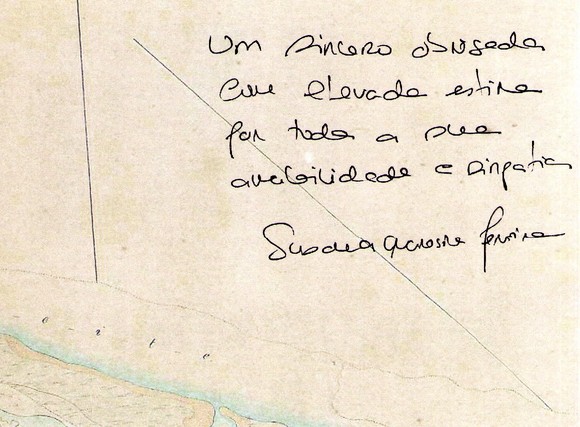 Um sincero obrigada
com elevada estima
por toda a sua
amabilidade e simpatia
Ferreira
o i t e